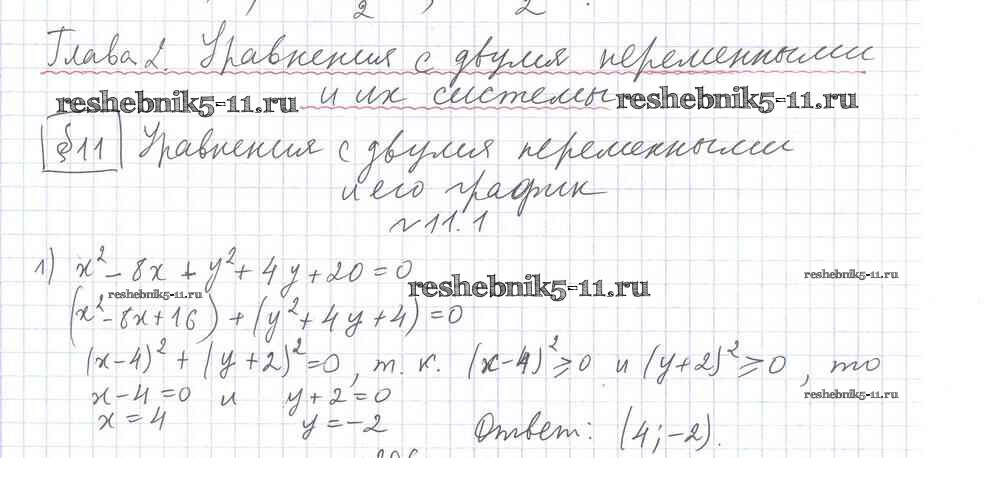 2 , 2 .
Глава 2. Уравнения с двумя переменными
reshebnik5-11.ru и их системы reshebnik5-11.ru
§11 Уравнения с двумя переменными
и его график
№11.1
1) x² - 8x + y² + 4y + 20 = 0
reshebnik5-11.ru
reshebnik5-11.ru reshebnik5-11.ru
(x² - 8x + 16) + (y² + 4y + 4) = 0
(x-4)² + (y+2)² = 0, т.к. (x-4)² ≥ 0 и (y+2)² ≥ 0, то
x-4 = 0 и y+2 = 0 reshebnik5-11.ru
x = 4 y = -2 Ответ: (4; -2).